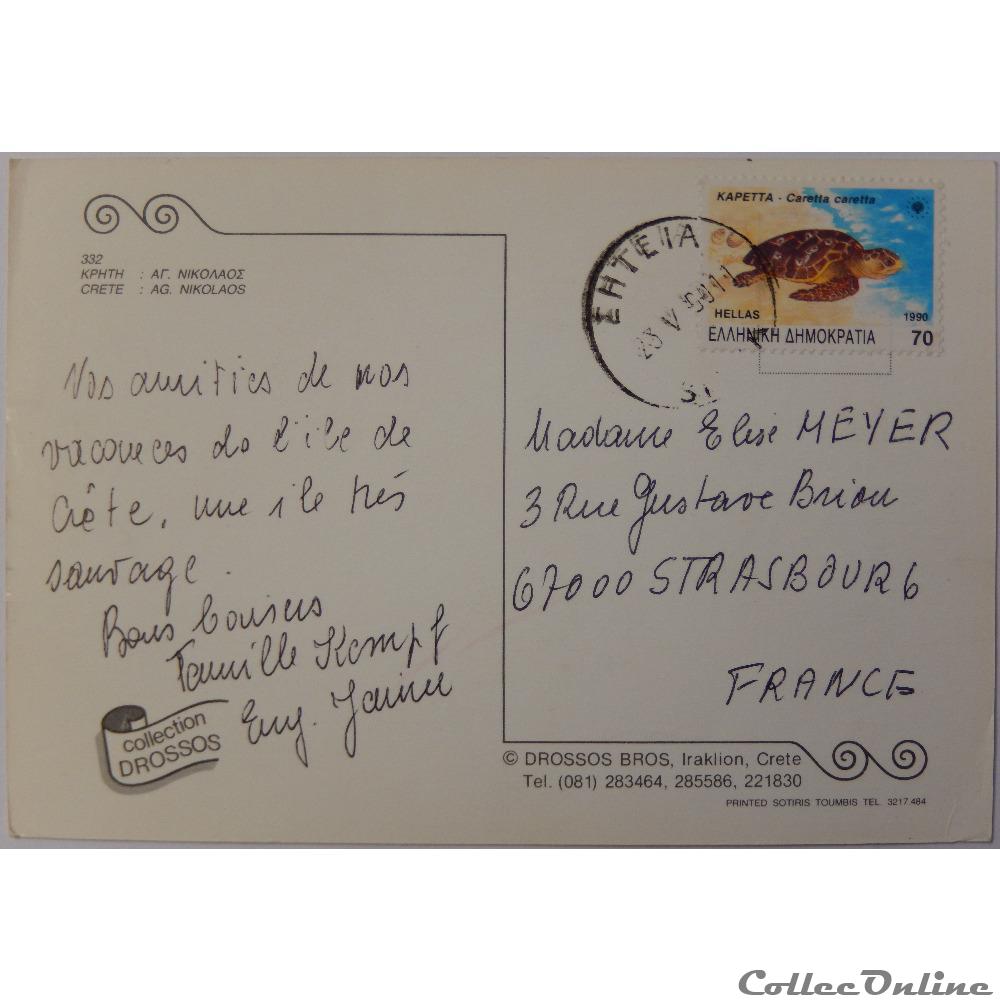 332
ΚΡΗΤΗ : ΑΓ. ΝΙΚΟΛΑΟΣ
CRETE : AG. NIKOLAOS
ΚΑΡΕΤΤΑ - Caretta caretta
HELLAS
1990
ΕΛΛΗΝΙΚΗ ΔΗΜΟΚΡΑΤΙΑ 70
ΣΗΤΕΙΑ
23 V
Vos amitiés de nos
vacances de l'île de
Crête, une île très
sauvage.
Bons baisers
Famille Kempf
Eug. Janine
Madame Elise MEYER
3 Rue Gustave Brion
67000 STRASBOURG
FRANCE
collection
DROSSOS
© DROSSOS BROS, Iraklion, Crete
Tel. (081) 283464, 285586, 221830
PRINTED SOTIRIS TOUMBIS TEL. 3217.484
CollecOnline